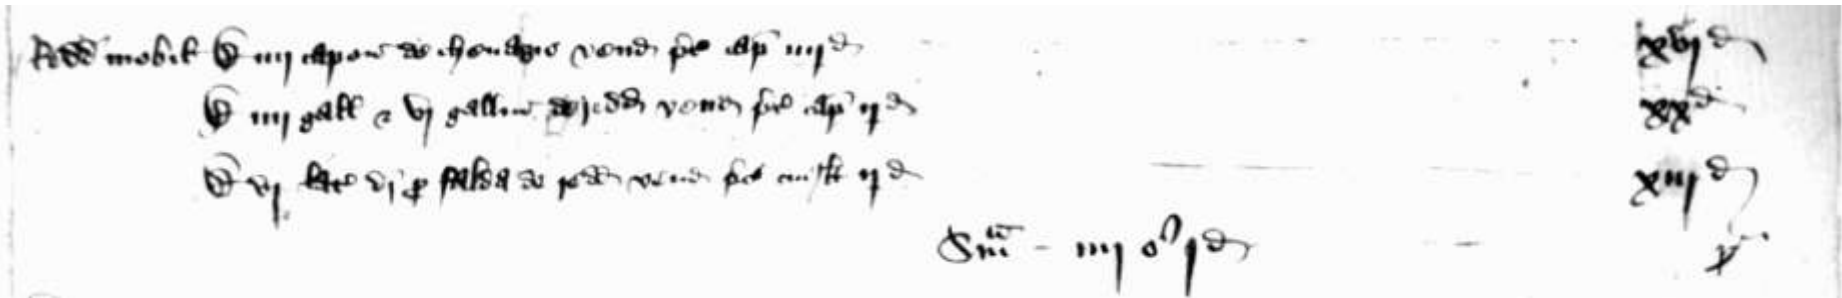 Redd mobil D iiij capon de chevagio vend pc cap iiijd xvjd
D iiij gall & vj gallin de redd vend pc cap ijd xxd
D vj li di p de redd vend pc ijd xiijd
Sma iiij s jd